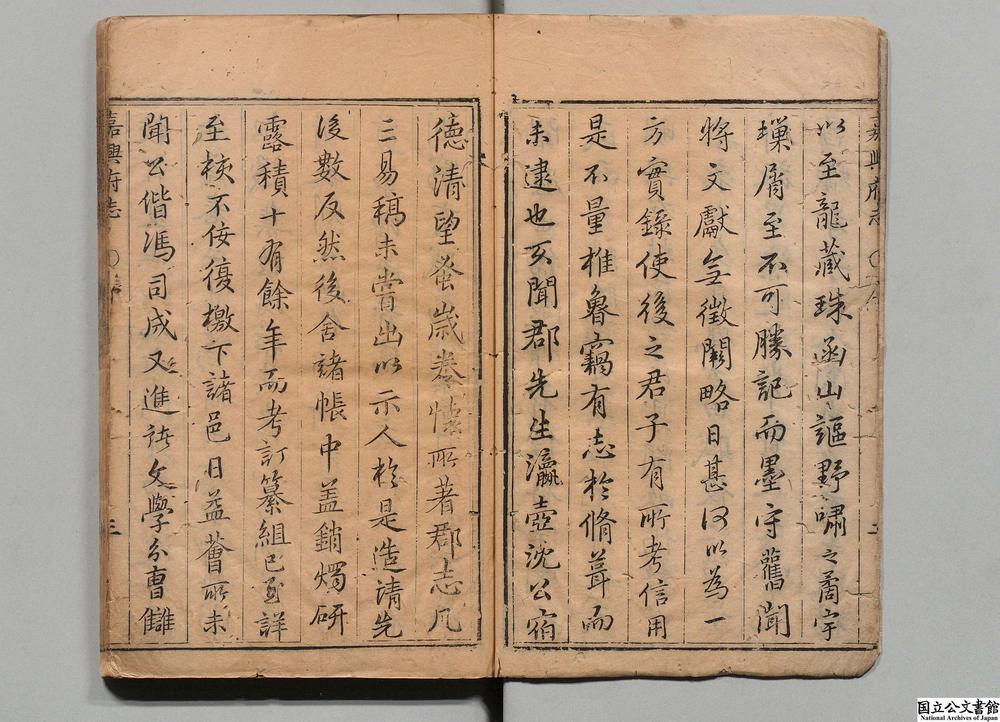 以至龍藏珠函山謳野嘯之裔字
壎屑至不可勝記而墨守舊聞
將文獻無徵闕略日甚何以為一
方實錄使後之君子有所考信用
是不量椎魯竊有志於脩葺而
未逮也亥聞郡先生瀛壺沈公宿
德清望蚤歲養懷所著郡志凡
三易稿未嘗出以示人於是造請先
後數反然後舍諸帳中蓋銷燭研
露積十有餘年而考訂纂組已至詳
至核不佞復檄下諸邑日益薈所未
聞公偕馮司成又進諸文學分曹讎
嘉興府志
三
嘉興府志
二
国立公文書館
National Archives of Japan